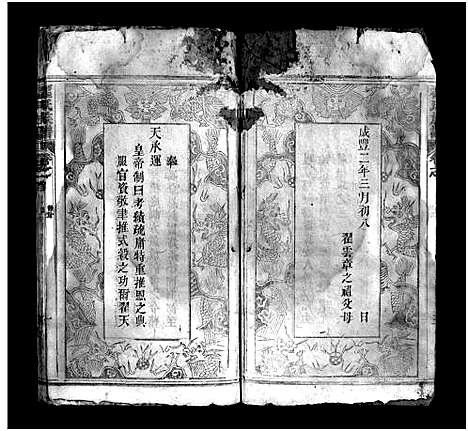 咸豐二年三月初八 日
翟雲章之祖父母
奉
天承運
皇帝制曰考績疏庸特重推恩之典
服官資敬聿推式穀之功爾翟天